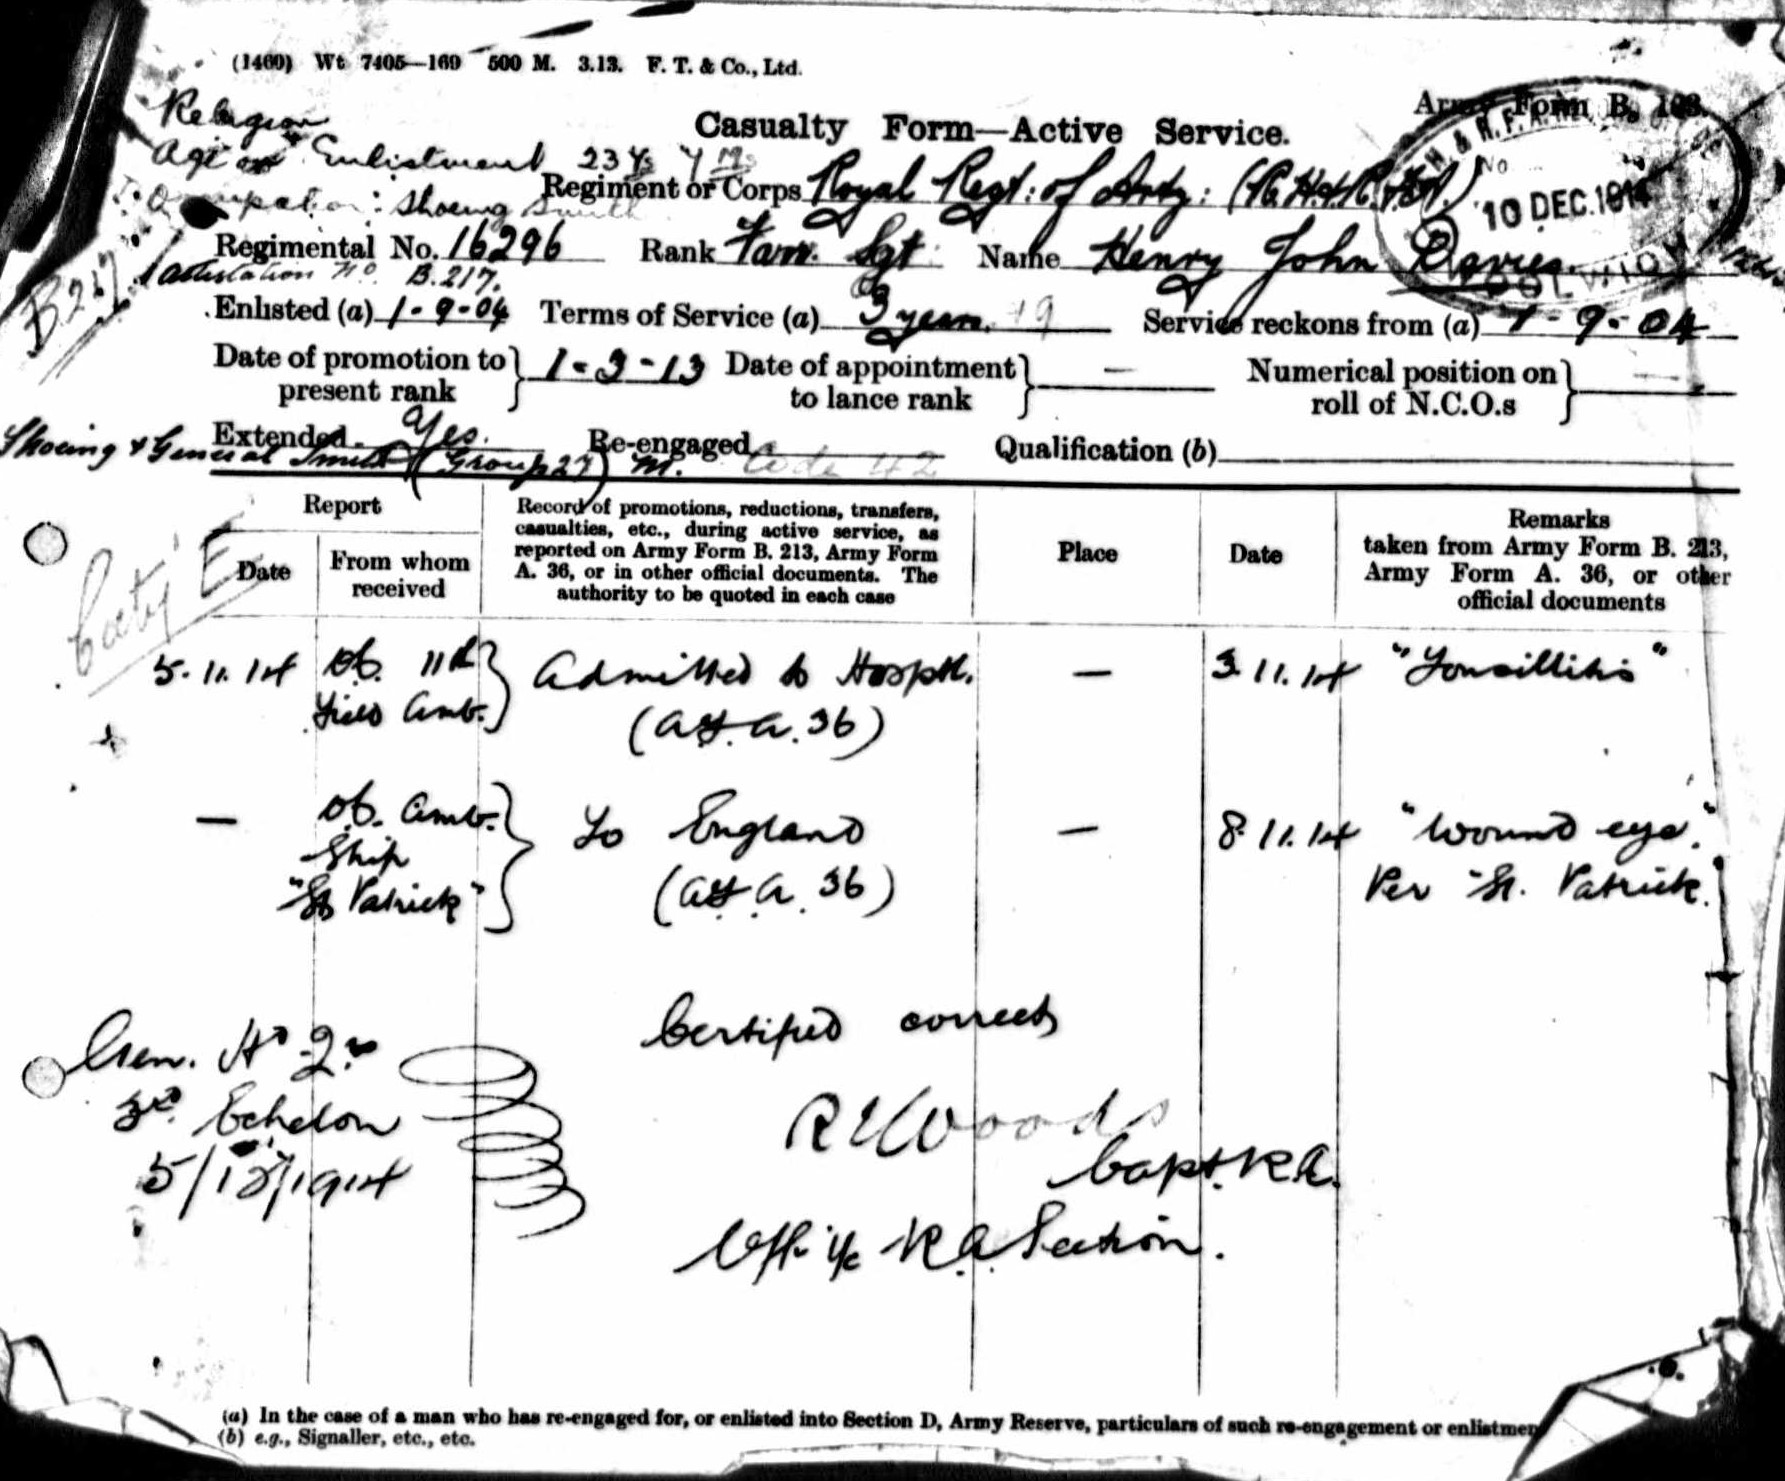 (1460) Wt 7405—169 500 M. 3.13. F. T. & Co., Ltd.
Army Form B. 103.
Religion
Casualty Form—Active Service.
Age on Enlistment 23 Ys 7 Ms
Regiment or Corps Royal Regt: of Arty: (R.H. & R.F.A.)
No
10 DEC. 1914
Occupation: Shoeing Smith
Regimental No. 16296 Rank Farr. Sgt Name Henry John Davies.
Attestation No. B.217.
B.217
Enlisted (a) 1-9-04 Terms of Service (a) 3 years. Service reckons from (a) 1-9-04
Date of promotion to present rank } 1-3-13 Date of appointment to lance rank } — Numerical position on roll of N.C.O.s } —
Extended Yes. Re-engaged Qualification (b)
Shoeing & General Smith (Group 27) M. Code 42
Report
Date
From whom received
Record of promotions, reductions, transfers, casualties, etc., during active service, as reported on Army Form B. 213, Army Form A. 36, or in other official documents. The authority to be quoted in each case
Place
Date
Remarks taken from Army Form B. 213, Army Form A. 36, or other official documents
5.11.14 Ob. 11th } Admitted to Hosptl. — 3.11.14 "Tonsillitis"
Field Amb. (A.F. A. 36)
— Ob. Amb. } To England — 8.11.14 "Wound eye".
Ship
"St Patrick" (A.F. A. 36) Per "St. Patrick.
Certified correct
Gen. Hd Qrs
3rd Echelon
5/12/1914
Woods
Capt. R.A.
Off. i/c R.A. Section.
(a) In the case of a man who has re-engaged for, or enlisted into Section D, Army Reserve, particulars of such re-engagement or enlistmen
(b) e.g., Signaller, etc., etc.